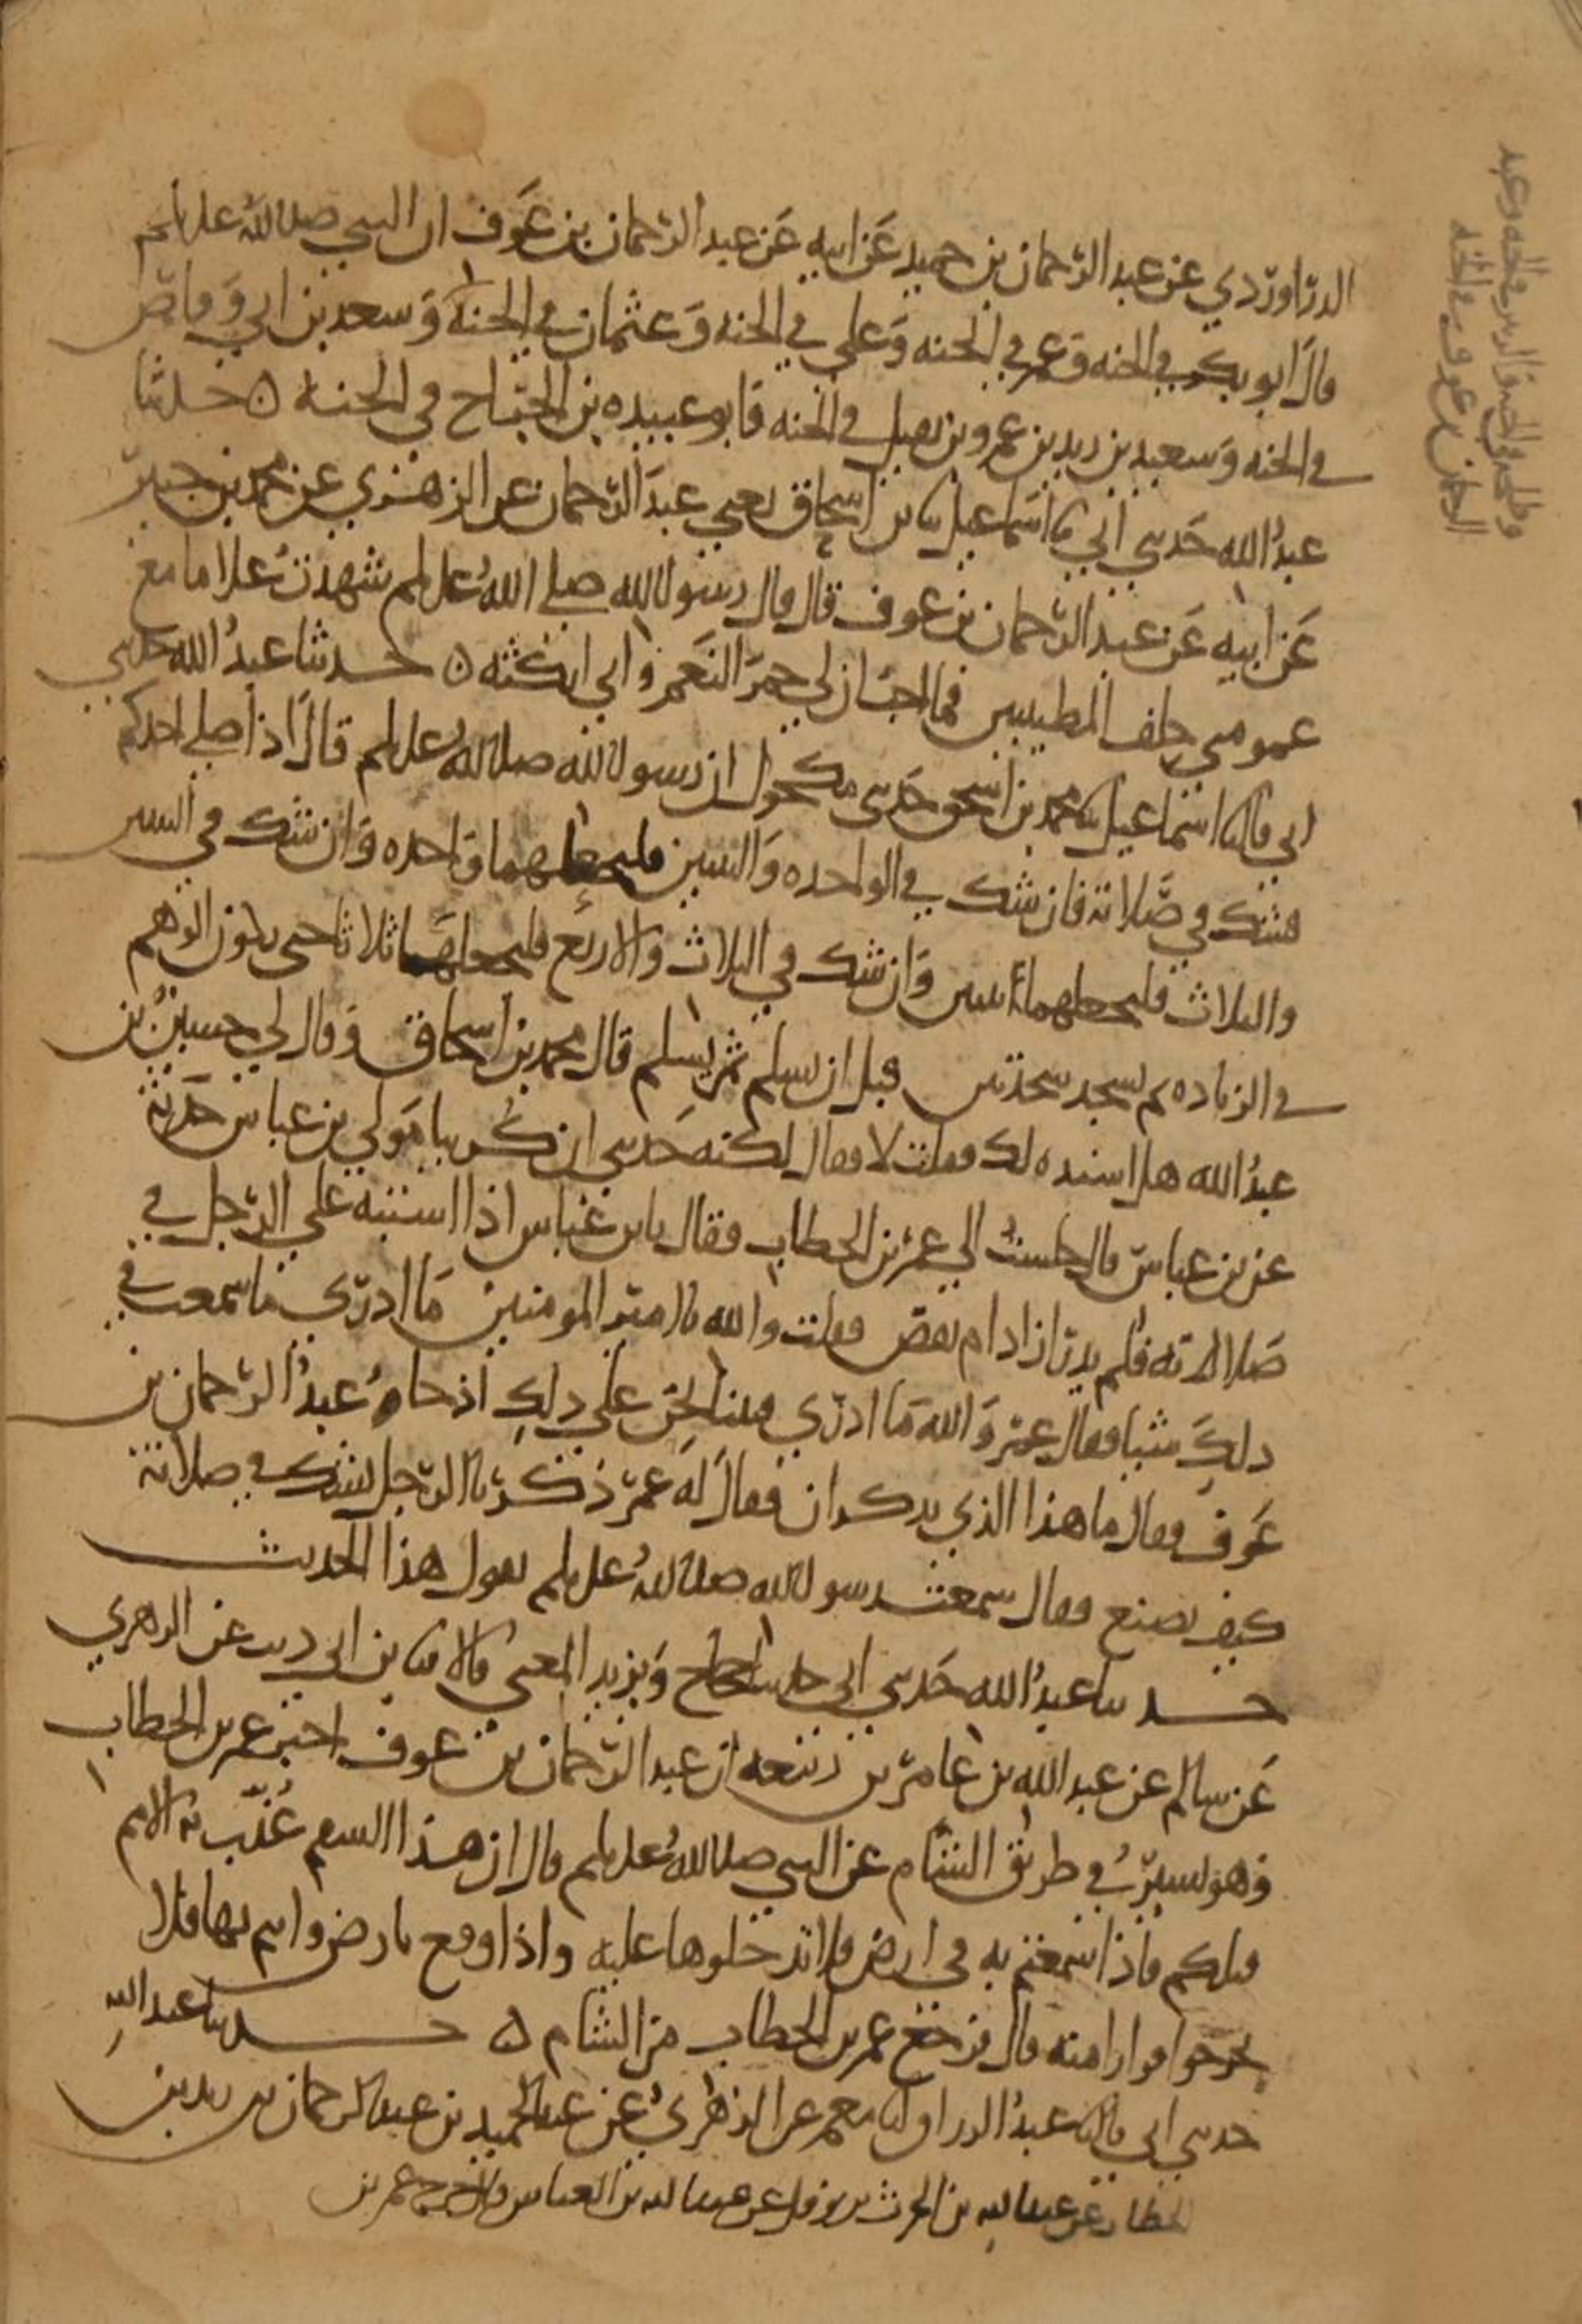 الدراوردي عن عبد الرحمان بن حميد عن ابيه عن عبد الرحمان بن عوف ان النبي صلى الله عليه وسلم
قال ابو بكر في الجنه وعمر في الجنه وعلي في الجنه وعثمان في الجنة وسعد بن ابي وقاص
في الجنه وسعيد بن زيد بن عمرو بن نفيل في الجنه وابو عبيده بن الجراح في الجنة ه حدثنا
عبد الله حدثني ابي نا اسماعيل نا بن اسحاق يعني عبد الرحمان عن الزهري عن محمد بن جبير
عن ابيه عن عبد الرحمان بن عوف قال قال رسول الله صلى الله عليه وسلم شهدت غلاما مع
عمومتي حلف المطيبين فما احب ان لي حمر النعم واني انكثه ه حدثنا عبد الله حدثني
ابي قال نا اسماعيل نا محمد بن اسحق حدثني مكحول ان رسول الله صلى الله عليه وسلم قال اذا صلى احدكم
فشك في صلاته فان شك في الواحده والثنتين فليجعلهما واحده وان شك في الثنتين
والثلاث فليجعلهما ثنتين وان شك في الثلاث والاربع فليجعلهما ثلاثا حتى يكون الوهم
في الزياده ثم يسجد سجدتين قبل ان يسلم ثم يسلم قال محمد بن اسحاق وقال لي حسين بن
عبد الله هل اسنده لك فقلت لا فقال لكنه حدثني ان كريبا مولى بن عباس حدثه
عن بن عباس قال جلست الى عمر بن الخطاب فقال يا بن عباس اذا اشتبه على الرجل في
صلاته فلم يدر ازاد ام نقص فقلت والله يا امير المومنين ما ادري ما سمعت في
ذلك شيا فقال عمر والله ما ادري فبينا نحن على ذلك اذ جاه عبد الرحمان بن
عوف فقال ما هذا الذي تذكران فقال له عمر ذكرنا الرجل يشك في صلاته
كيف يصنع فقال سمعت رسول الله صلى الله عليه وسلم يقول هذا الحديث
حدثنا عبد الله حدثني ابي حدثنا حجاج ويزيد المعنى قالا نا بن ابي ذيب عن الزهري
عن سالم عن عبد الله بن عامر بن ربيعه ان عبد الرحمان بن عوف اخبر عمر بن الخطاب
وهو يسير في طريق الشام عن النبي صلى الله عليه وسلم قال ان هذا السقم عذب به الامم
قبلكم فاذا سمعتم به في ارض فلا تدخلوها عليه واذا وقع بارض وانتم بها فلا
تخرجوا فرارا منه قال فرجع عمر بن الخطاب من الشام ه حدثنا عبد الله
حدثني ابي قال نا عبد الرزاق انا معمر عن الزهري عن عبد الحميد بن عبد الرحمان بن زيد بن
الخطاب عن عبد الله بن الحرث بن نوفل عن عبد الله بن العباس قال خرج عمر بن
وطلحه في الجنه والزبير في الجنه وعبد
الرحمن بن عوف في الجنه